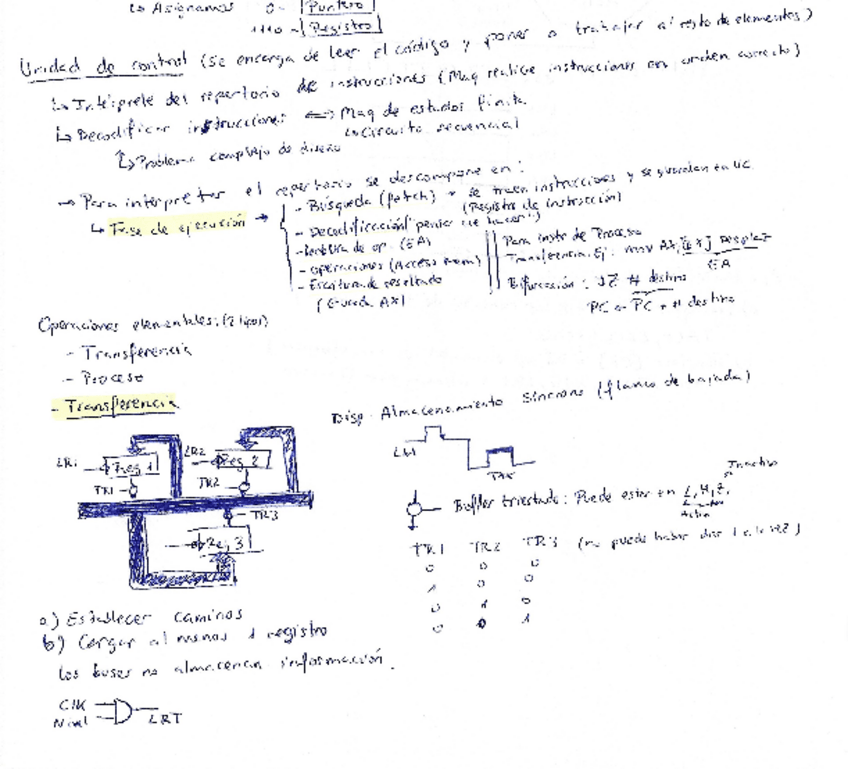 ↳ Asignamos 0 - Puntero
1110 - Registro
Unidad de control (se encarga de leer el código y poner a trabajar al resto de elementos)
↳ Intérprete del repertorio de instrucciones (Maq realice instrucciones en orden correcto)
↳ Decodificar instrucciones ⟺ Maq de estados finita
↳ Circuito secuencial
↳ Problema complejo de diseño
→ Para interpretar el repertorio se descompone en:
↳ Fase de ejecución →
- Búsqueda (fetch) → se traen instrucciones y se guardan en UC
(Registro de instrucción)
- Decodificación ("pensar que hacer")
- Lectura de op. (EA)
- operaciones (Acceso mem)
- Escritura de resultado
(Guarda AX)
Para instr de Proceso
Transferencia. Ej: mov AX,
EA
Bifurcación: JZ # destino
PC ← PC + # destino
Operaciones elementales: (2 tipos)
- Transferencia
- Proceso
- Transferencia
Disp. Almacenamiento síncrono (flanco de bajada)
LR1 Reg 1 LR2 Reg 2
TR1 TR2
TR3
Reg 3
LR1
Buffer triestado: Puede estar en L, H, Z,
Inactivo
Activo
TR1 TR2 TR3 (no puede haber dos 1 a la vez)
0 0 0
1 0 0
0 1 0
0 0 1
a) Establecer caminos
b) Cargar al menos 1 registro
Los buses no almacenan información.
Clk
Nivel LRT